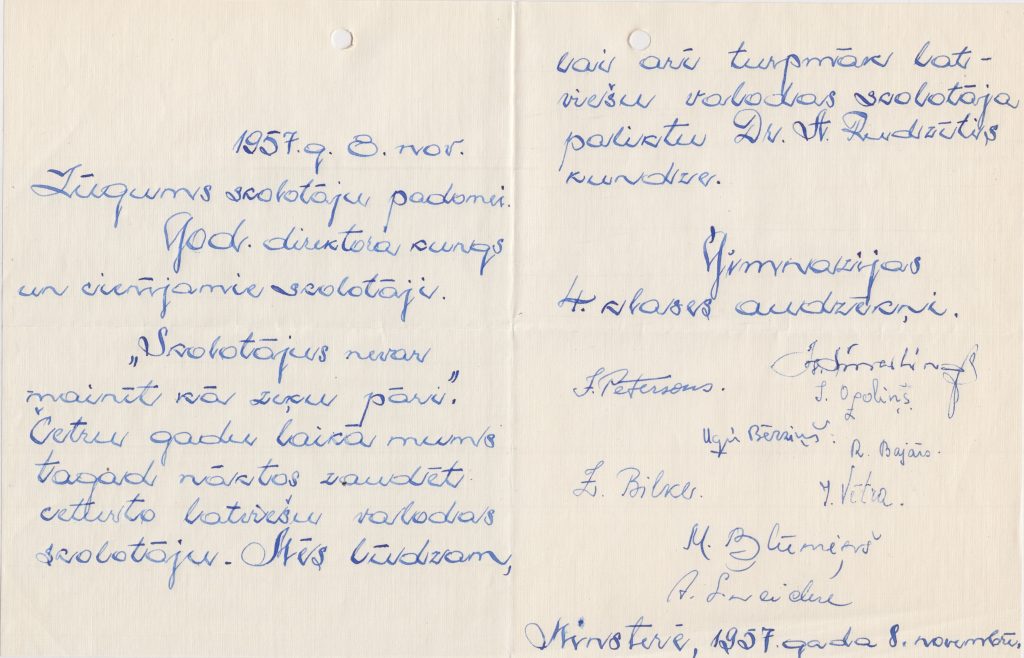 1957.g. 8. nov.
Lūgums skolotāju padomei.
God. direktora kungs
un cienījamie skolotāji.
„Skolotājus nevar
mainīt kā zeķu pāri.”
Četru gadu laikā mums
tagad nāktos zaudēt
ceturto latviešu valodas
skolotāju. Mēs lūdzam,
lai arī turpmāk lat-
viešu valodas skolotāja
paliktu Dr. A. Rudzītis
kundze.
Ģimnazijas
4. klases audzēkņi.
J. Petersons.
J. Ozoliņš
Uģis Bērziņš.
R. Bajārs.
Z. Bilken.
J. Vētra.
M. Blūmiņš
A. Sneidere
Minsterē, 1957. gada 8. novembrī.